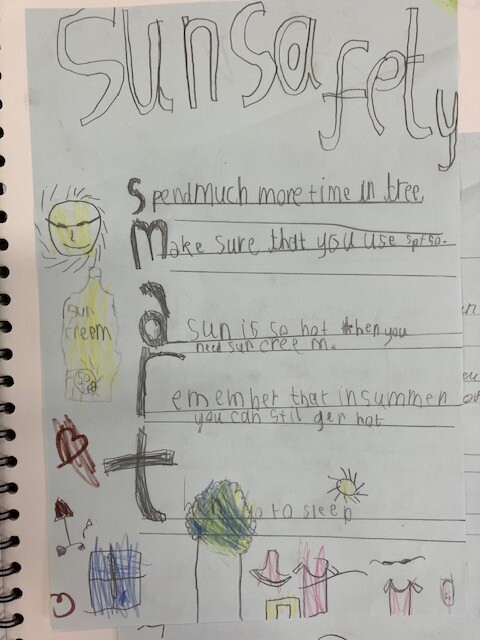 sunsafety
Spendmuch more time in tree.
make sure that you use spf 50.
sun
creem
50
a sun is so hot then you
need sun cree m.
remember that in summer
you can stil ger hot
t go to sleep